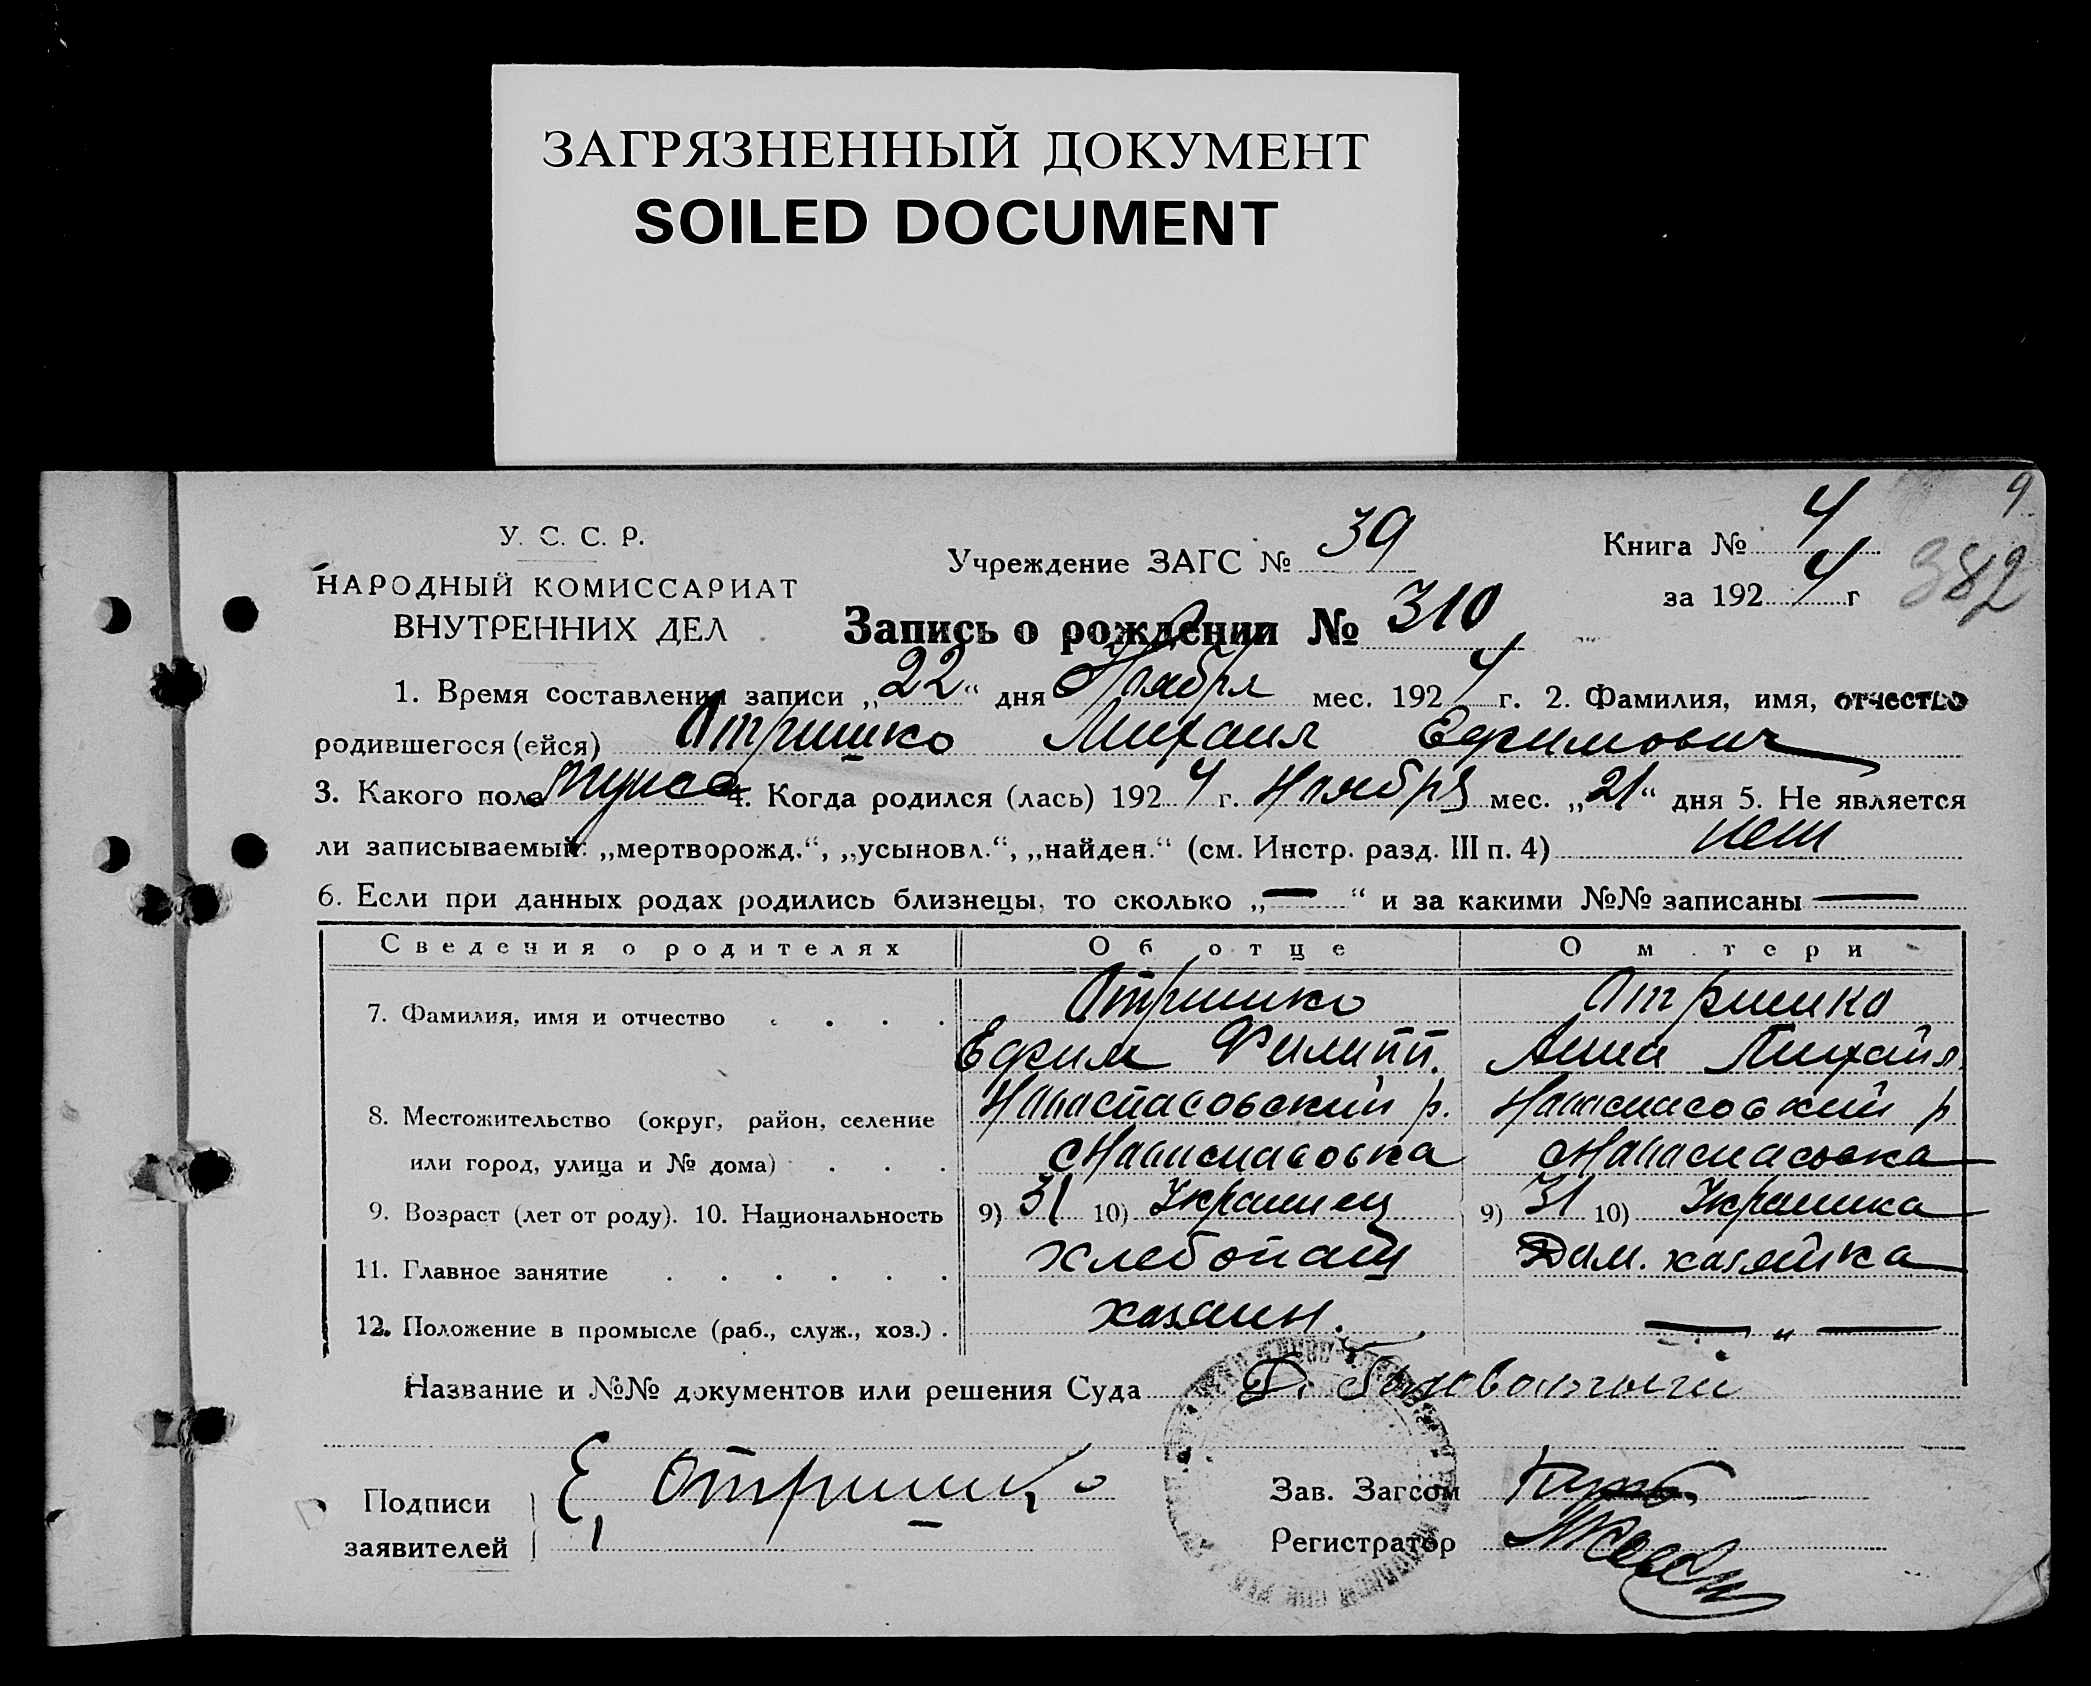 ЗАГРЯЗНЕННЫЙ ДОКУМЕНТ
SOILED DOCUMENT
9
382
У. С. С. Р.
НАРОДНЫЙ КОМИССАРИАТ
ВНУТРЕННИХ ДЕЛ
Учреждение ЗАГС № 39
Книга № 4
за 192 4 г
Запись о рождении № 310
1. Время составления записи „22“ дня Ноября мес. 192 4 г. 2. Фамилия, имя, отчество
родившегося (ейся) Отришко Михаил Ефимович
3. Какого пола мужс 4. Когда родился (лась) 192 4 г. Ноября мес. „21“ дня 5. Не является
ли записываемый: „мертворожд.“, „усыновл.“, „найден.“ (см. Инстр. разд. III п. 4) нет
6. Если при данных родах родились близнецы, то сколько „—“ и за какими №№ записаны —
Сведения о родителях Об отце О м тери
7. Фамилия, имя и отчество . . . . Отришко Отришко
Ефим Филипп. Анна Михайл.
8. Местожительство (округ, район, селение Новоспасовский р. Новоспасовский р
или город, улица и № дома) . . . с Новоспасовка с Новоспасовка
9. Возраст (лет от роду). 10. Национальность 9) 31 10) Украинец 9) 31 10) Украинка
11. Главное занятие . . . . . . хлебопащ Дом. хозяйка
12. Положение в промысле (раб., служ., хоз.) . хозяин. — „ —
Название и №№ документов или решения Суда
Подписи
заявителей
Е. Отришко
Зав. Загсом
Регистратор